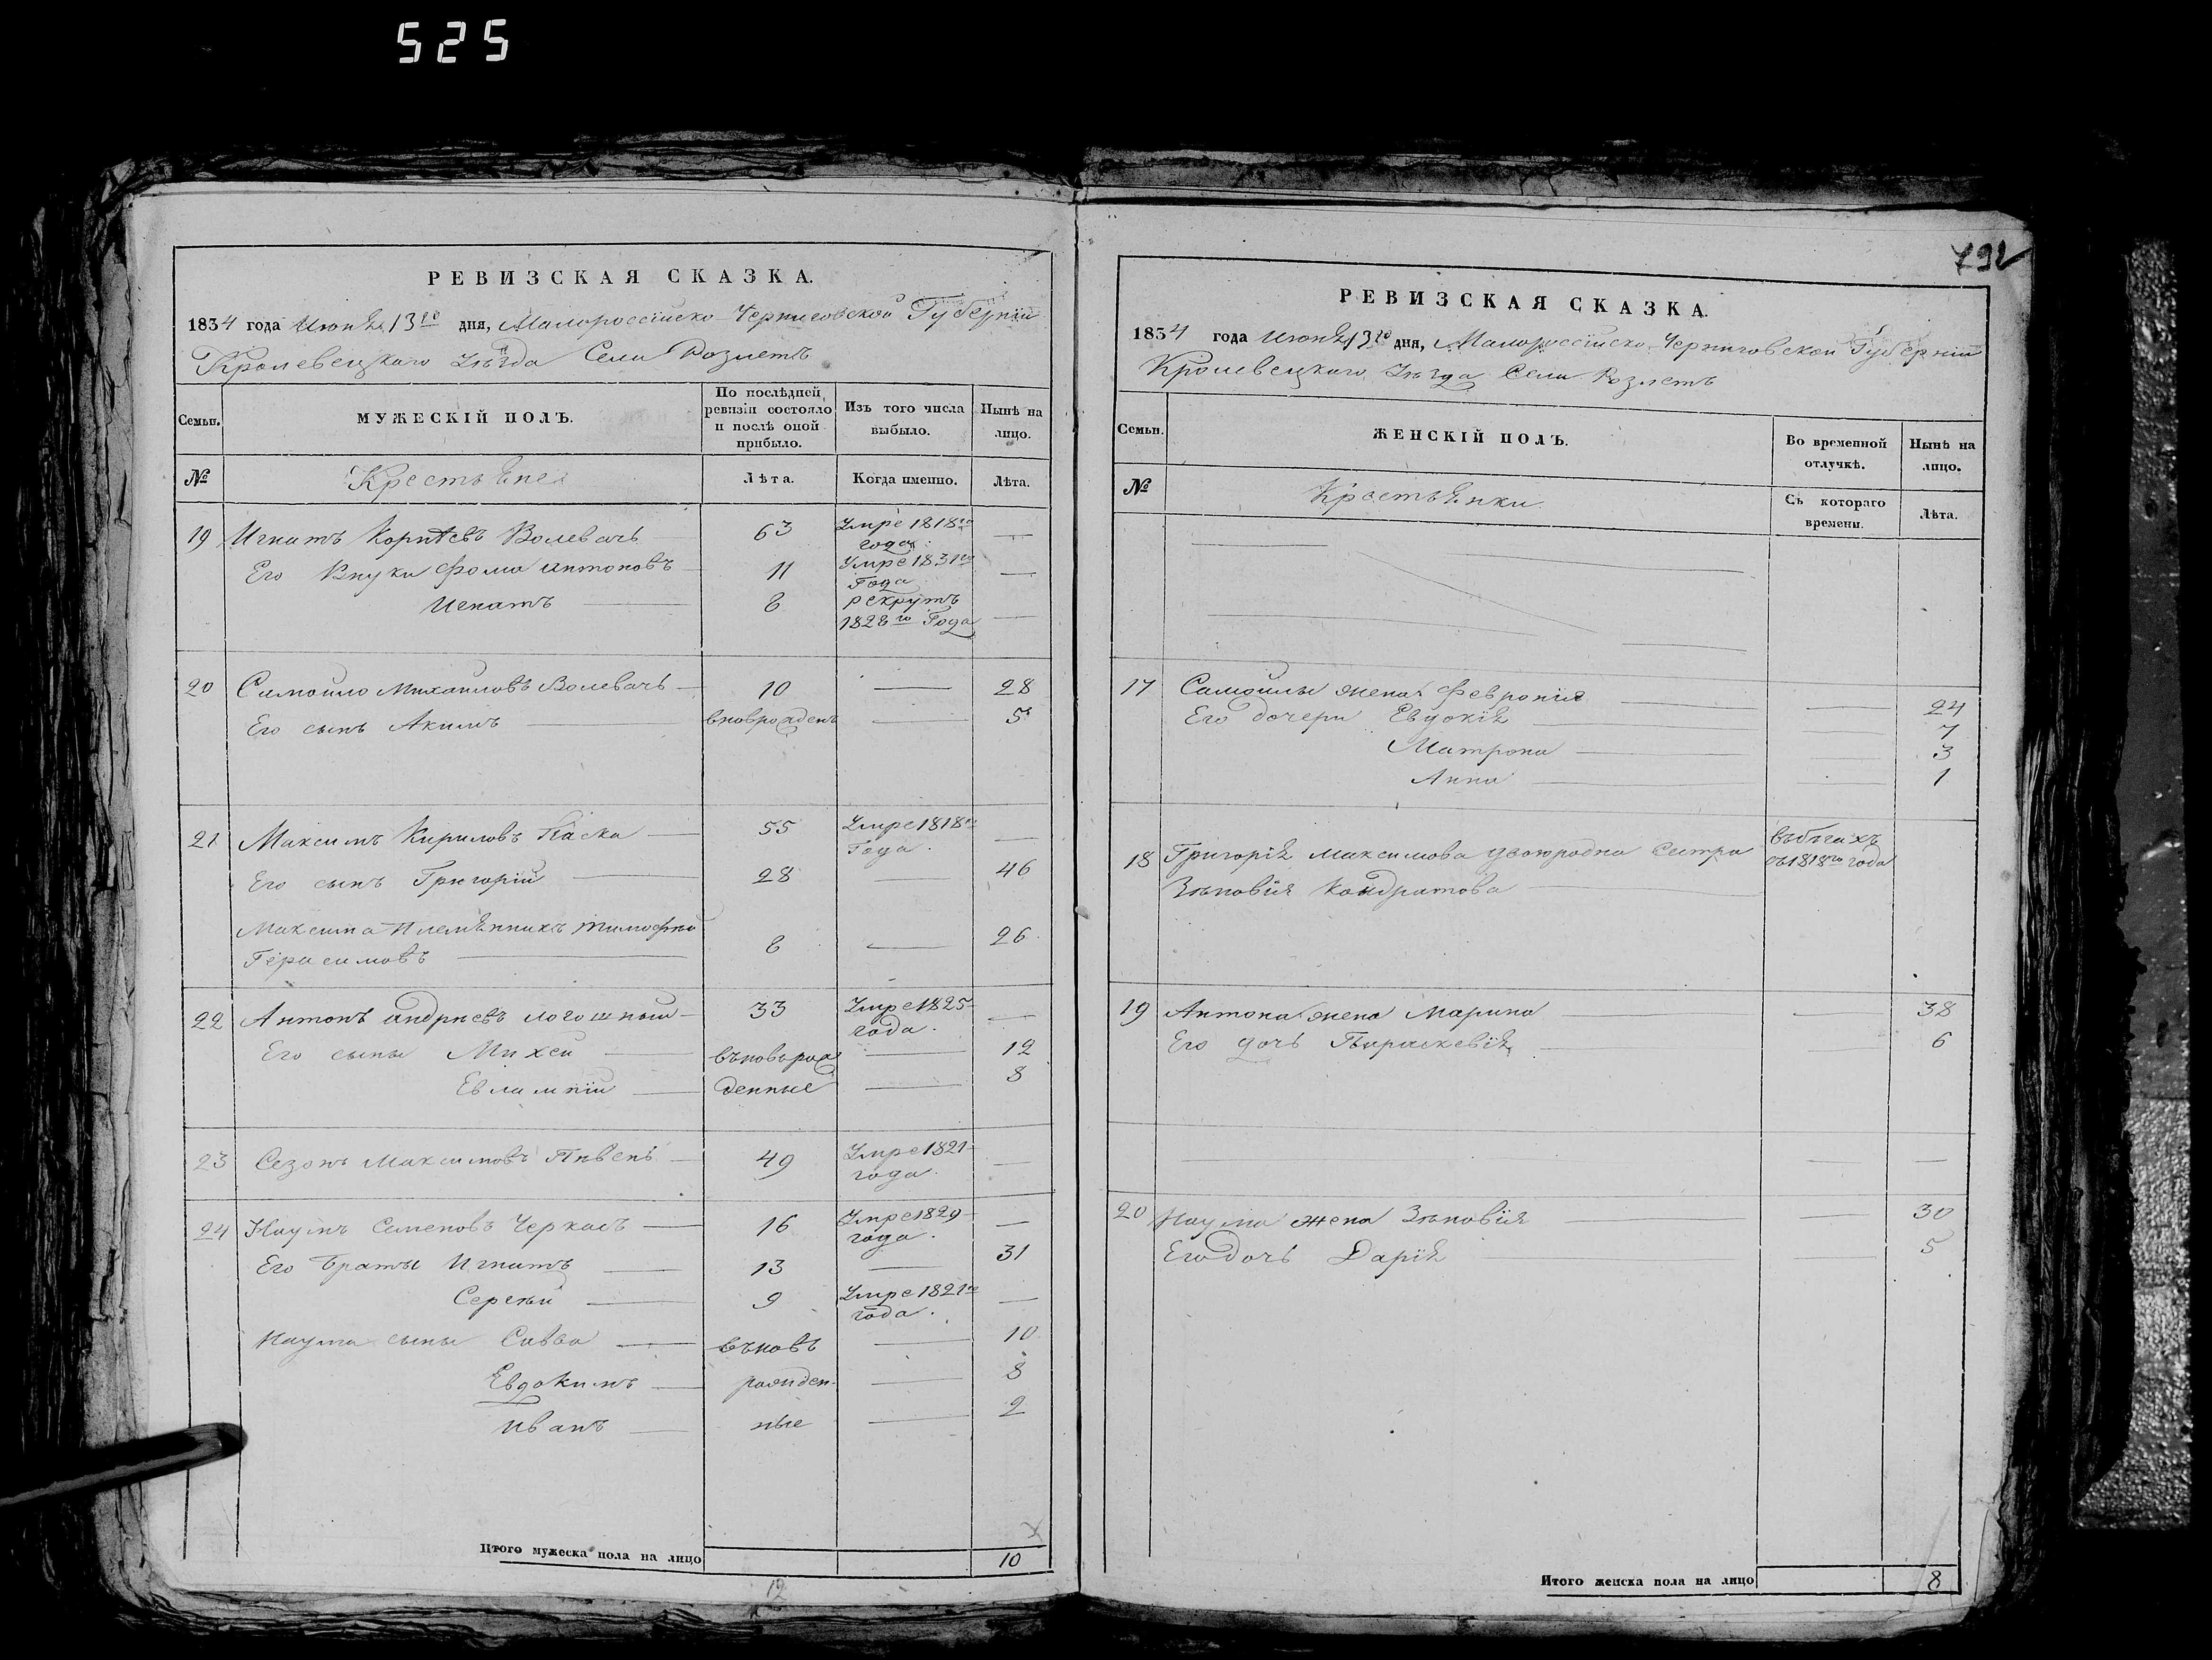 525
РЕВИЗСКАЯ СКАЗКА.
1834 года Июня 13го дня, Малороссійско Черниговской Губерніи
Кролевецкого Уѣзда Села Розлетъ
Семьи.
МУЖЕСКІЙ ПОЛЪ.
По послѣдней ревизіи состояло и послѣ оной прибыло.
Изъ того числа выбыло.
Нынѣ на лицо.
№
Крестьяне
Лѣта.
Когда именно.
Лѣта.
19 Игнатъ Корнѣевъ Волевачь 63 Умре 1818го года —
Его Внуки Фома Антоновъ 11 Умре 1831го Года —
Игнатъ 8 рекрутъ 1828го Года —
20 Самойло Михайловъ Волевачь 10 — 28
Его сынъ Акимъ вновѣрожденъ — 5
21 Максимъ Кириловъ Паска 55 Умре 1818го Года —
Его сынъ Григорій 28 — 46
Максима Племѣнникъ Тимофѣй
Герасимовъ 8 — 26
22 Антонъ Андрѣевъ 33 Умре 1825 года —
Его сыны Михей въновьрож — 12
Евлампій денные — 8
23 Созонъ Максимовъ Пѣвень 49 Умре 1821 года —
24 Наумъ Семеновъ Черкасъ 16 Умре 1829 года —
Его Браты Игнатъ 13 — 31
Сергѣй 9 Умре 1821го года —
Наума сыны Савва въновъ — 10
Евдокимъ рожден — 8
Иванъ ные — 2
Итого мужеска пола на лицо 10
12
792
РЕВИЗСКАЯ СКАЗКА.
1834 года Июня 13го дня, Малороссійско Черниговской Губерніи
Кролевецкаго Уѣзда Села Розлетъ
Семьи.
ЖЕНСКІЙ ПОЛЪ.
Во временной отлучкѣ.
Нынѣ на лицо.
№
Крестьянки
Съ котораго времени.
Лѣта.
17 Самойлы жена Февронія — 24
Его дочери Евдокія — 7
Матрона — 3
Анна — 1
18 Григорія Максимова двоюродна Сестра въбѣгахъ
Зѣновія Кондратова съ1818го года
19 Антона жена Марина — 38
Его дочь Параскевія — 6
— —
20 Наума жена Зѣновія — 30
Его дочь Дарія — 5
Итого женска пола на лицо 8